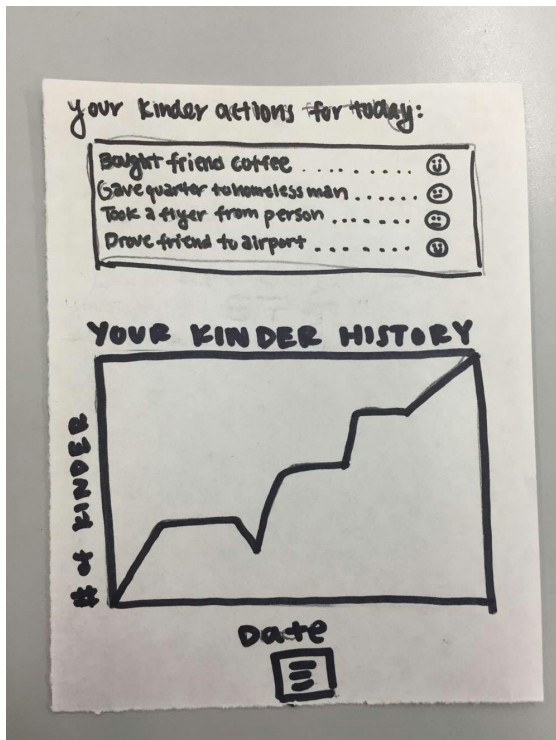 Your kinder actions for today:
Bought friend coffee . . . . . . . . .
Gave quarter to homeless man . . . . . .
Took a flyer from person . . . . . . .
Drove friend to airport . . . . . . . .
YOUR KINDER HISTORY
# of KINDER
Date